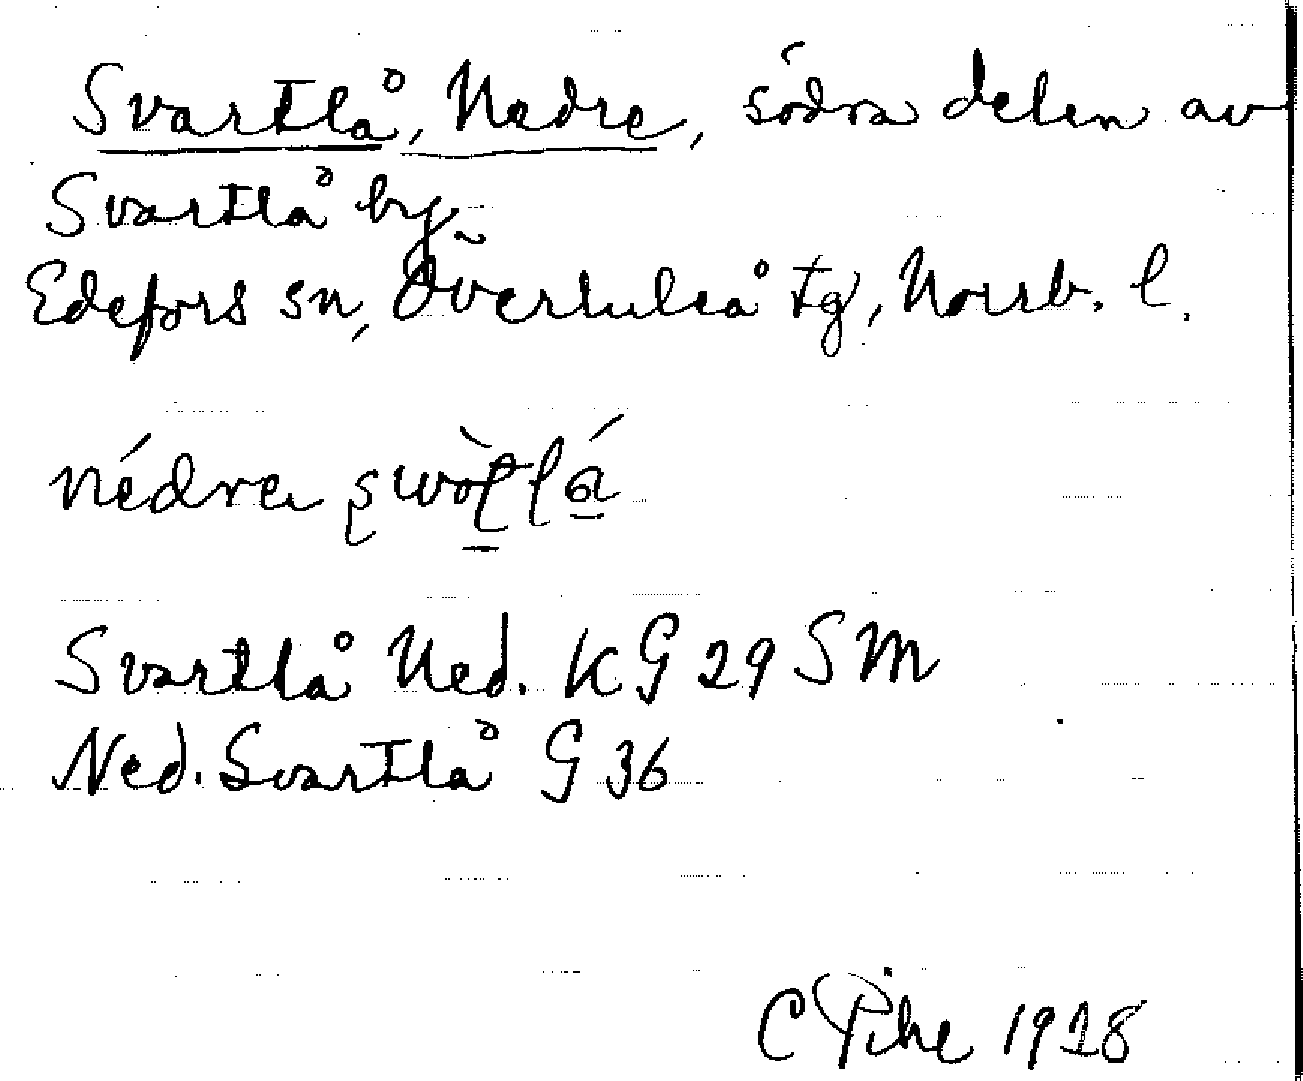 Svartlå, Nedre, södra delen av
Svartlå by
Edefors sn, Överluleå tg, Norrb. l.
Svartlå Ned. KG 29 SM
Ned. Svartlå G 36
C Pihl 1928